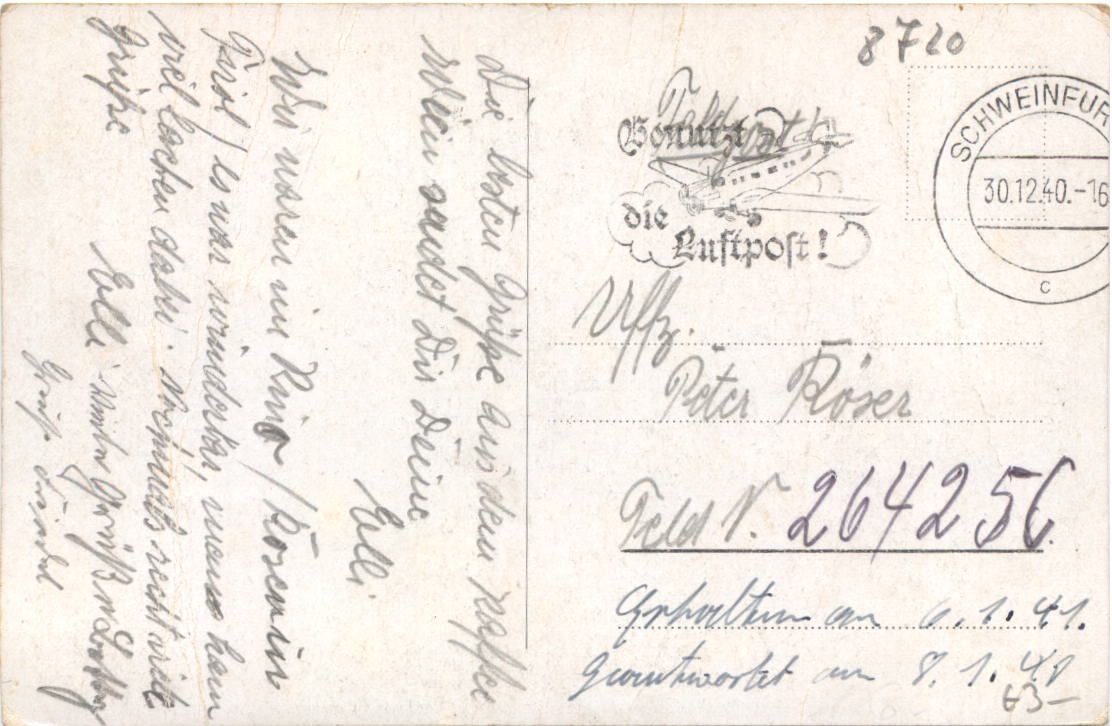 Die besten Grüße aus dem Kaffee
Wien sendet Dir Deine
Elli
Wir waren im Kino / Rosen in
Tirol / es war wunderbar, mens kann
viel lachen dabei. Nochmals recht viele
Grüße
Elli
8720
Feldpost
Benutzt
die
Luftpost!
SCHWEINFUR
30.12.40.-16
c
Uffz.
Peter Röser
Feld N. 26425C.
Erhalten am 6.1.41.
Geantwortet am 8.1.41
63-